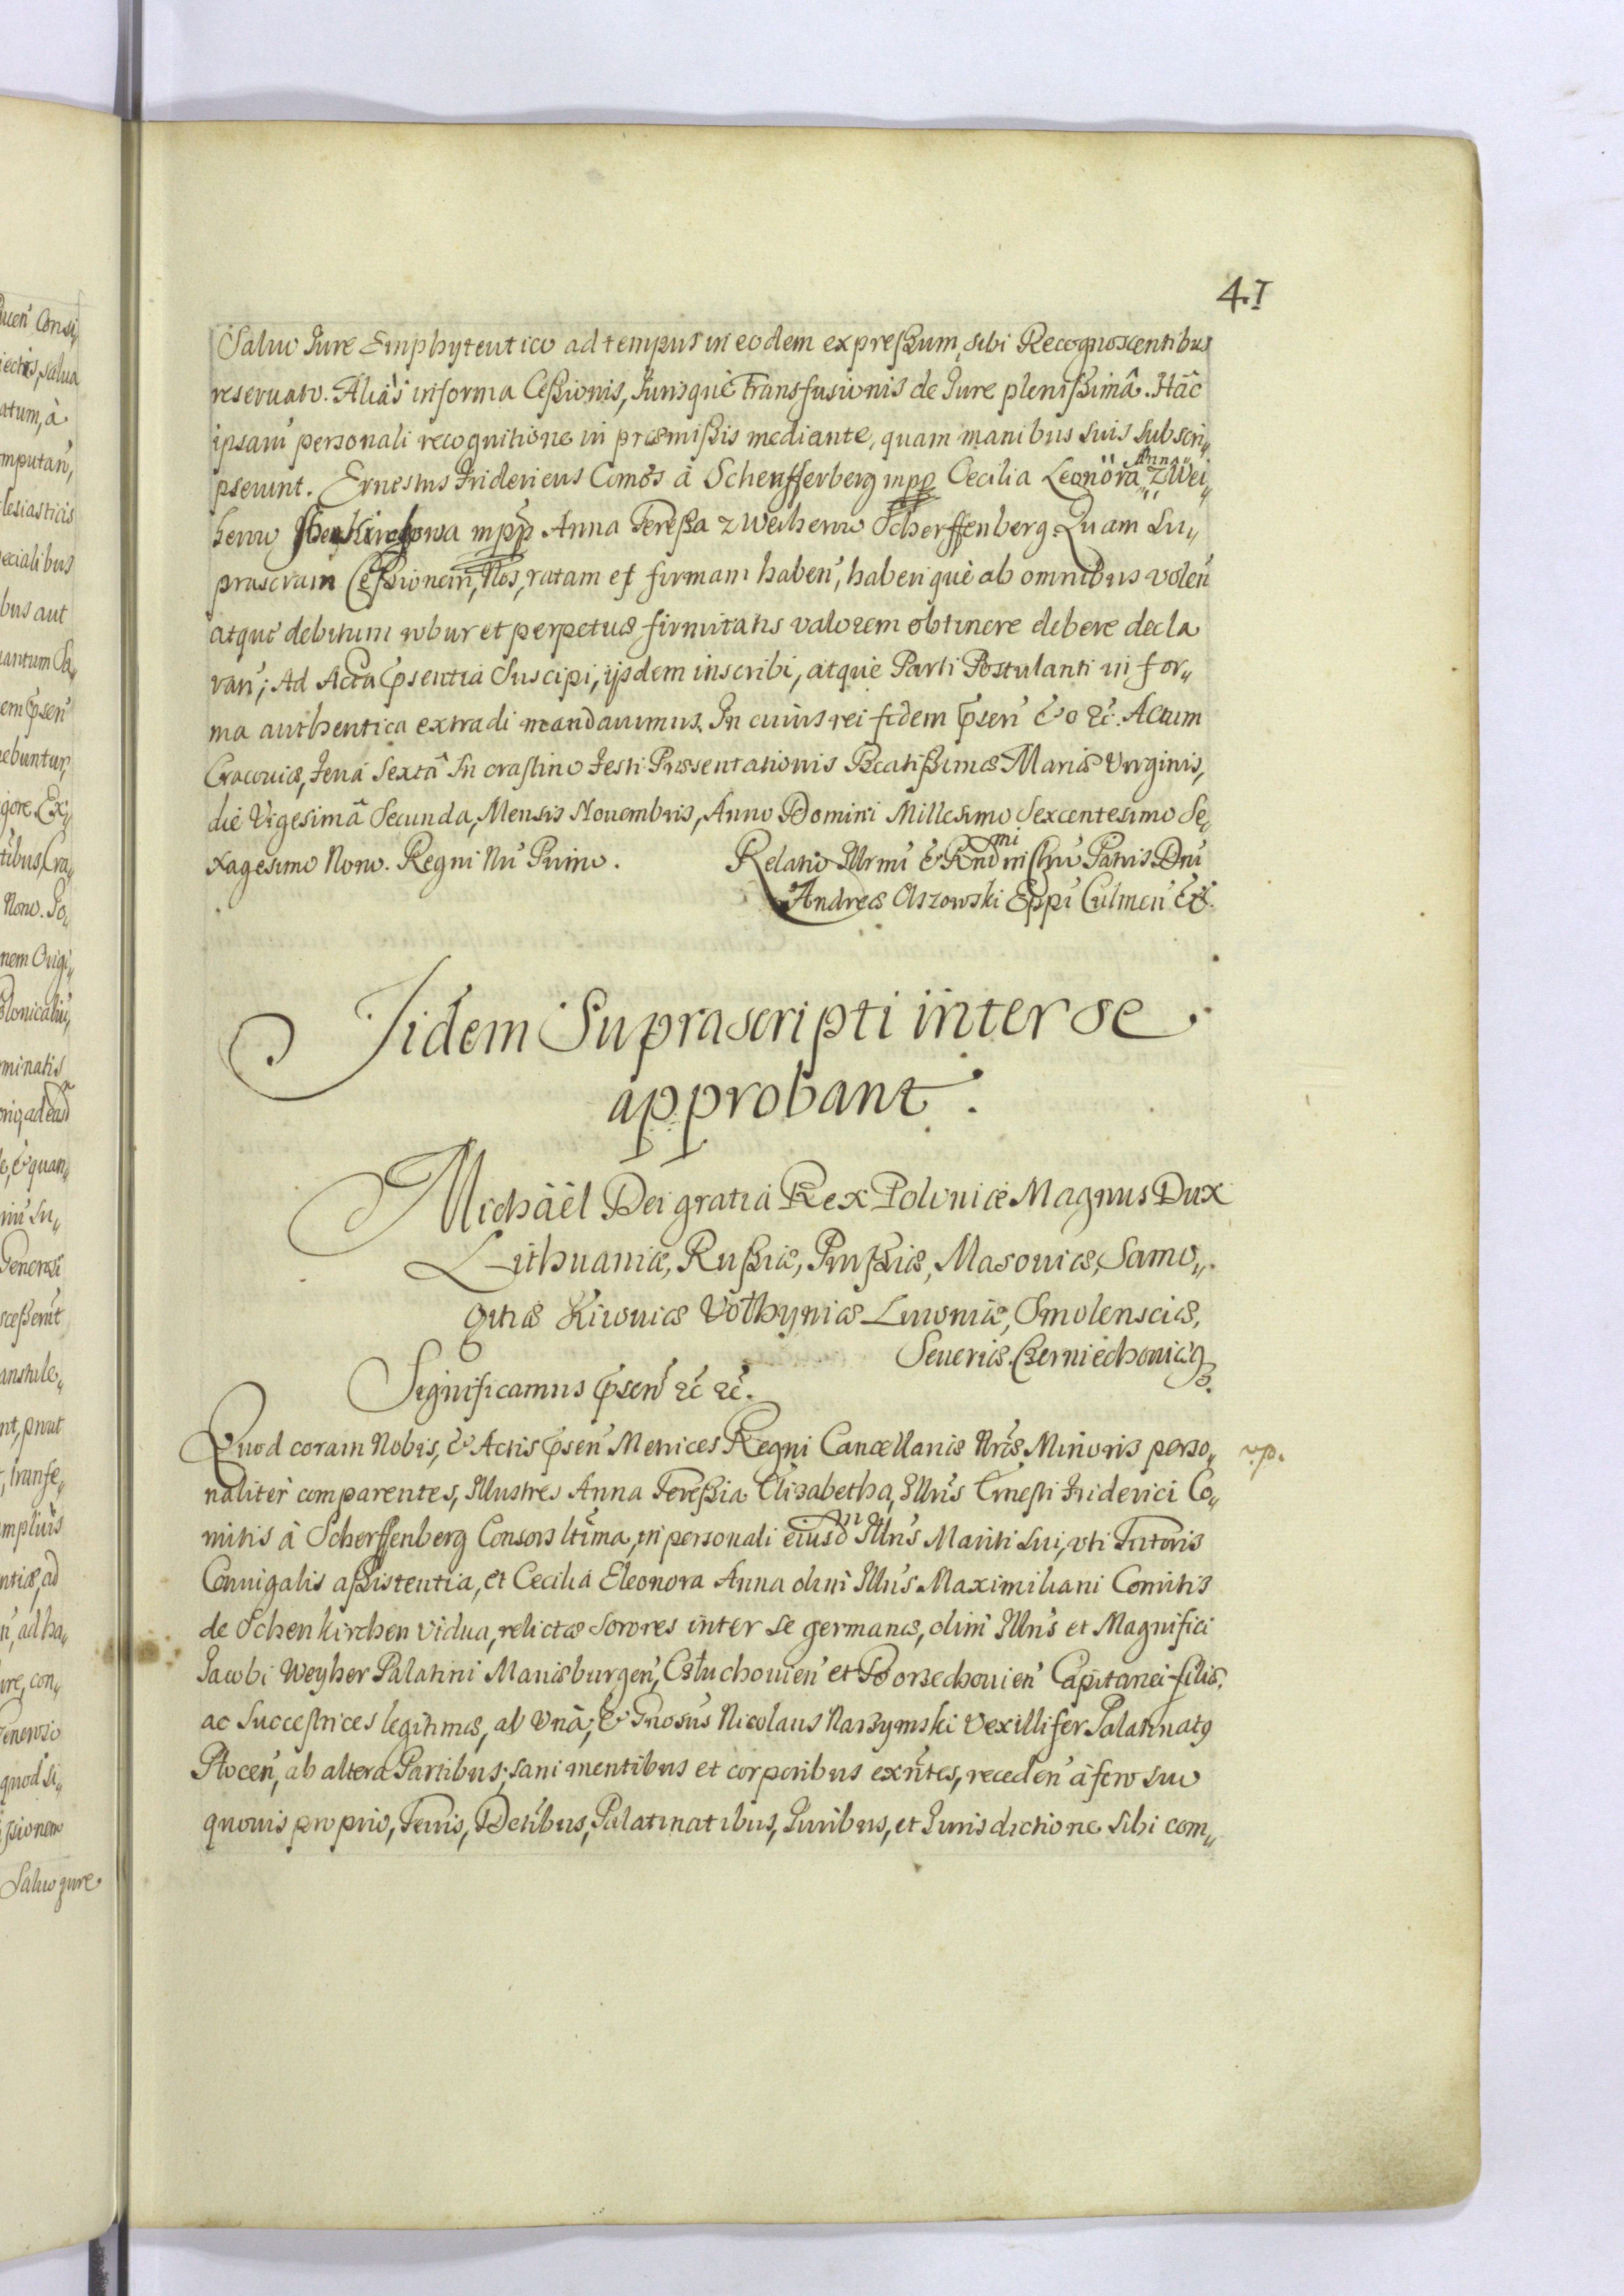 41
Salvo Jure Emphyteutico ad tempus in eodem expressum, sibi Recognoscentibus
reservato. Aliàs in forma Cessionis, Jurisquè Transfusionis de Jure plenissimâ. Hâc
ipsam personali recognitione in præmissis mediante, quam manibus suis subscri„
pserunt. Ernestus Fridericus Comes à Scherffenberg mpp Cecilia Leonora Anna z Wei„
herow Shenkirchowa mpp Anna Teressa z Weiherow Scherffenberg. Quam Su„
prascram Cessionem, Nos, ratam et firmam haben, haberiquè ab omnibus volen
atque debitum robur et perpetuæ firmitatis valorem obtinere debere decla
ran; Ad Acta psentia Suscipi, ijsdem inscribi, atquè Parti Postulanti in for„
ma authentica extradi mandavimus. In cuius rei fidem psen &o &c. Actum
Cracoviæ, Feriâ Sextâ In crastino Festi Præsentationis Beatissimæ Mariæ Virginis,
die Vigesimâ Secunda, Mensis Novembris, Anno Domini Millesimo Sexcentesimo Se„
xagesimo Nono. Regni Nri Primo.
Relatio Illrmi & Rndmi in Chro Patris Dni
Andreæ Olszowski Eppi Culmen &c.
Iidem Suprascripti inter se
approbant.
Michäel Dei gratiâ Rex Poloniæ Magnus Dux
Lithuaniæ, Russiæ, Prussiæ, Masoviæ, Samo„
gitiæ Kijoviæ Volhyniæ Livoniæ, Smolensciæ,
Severiæ. Czerniechoviæq3.
Significamus psen &c &c.
Quod coram Nobis, & Actis psen Metrices Regni Cancellariæ Nræ Minoris perso„
v.p.
naliter comparentes, Illustres Anna Teressia Elisabetha, Illris Ernesti Friderici Co„
mitis à Scherffenberg Consors ltima, in personali eiusdm Illris Mariti sui, vti Tutoris
Coniugalis assistentia, et Cecilia Eleonora Anna olim Illris Maximiliani Comitis
de Schenkirchen Vidua, relictæ Sorores inter se germanæ, olim Illris et Magnifici
Jacobi Weyher Palatini Mariæburgen, Człuchovien et Borzechovien Capitanei filiæ,
ac Successtrices legitimæ, ab Vnâ; & Gnosus Nicolaus Narzymski Vexillifer Palatinatg
Plocen, ab altera Partibus; sani mentibus et corporibus exntes, receden à foro suo
quovis proprio, Terris, Dstribus, Palatinatibus, Juribus, et Jurisdictione sibi com„